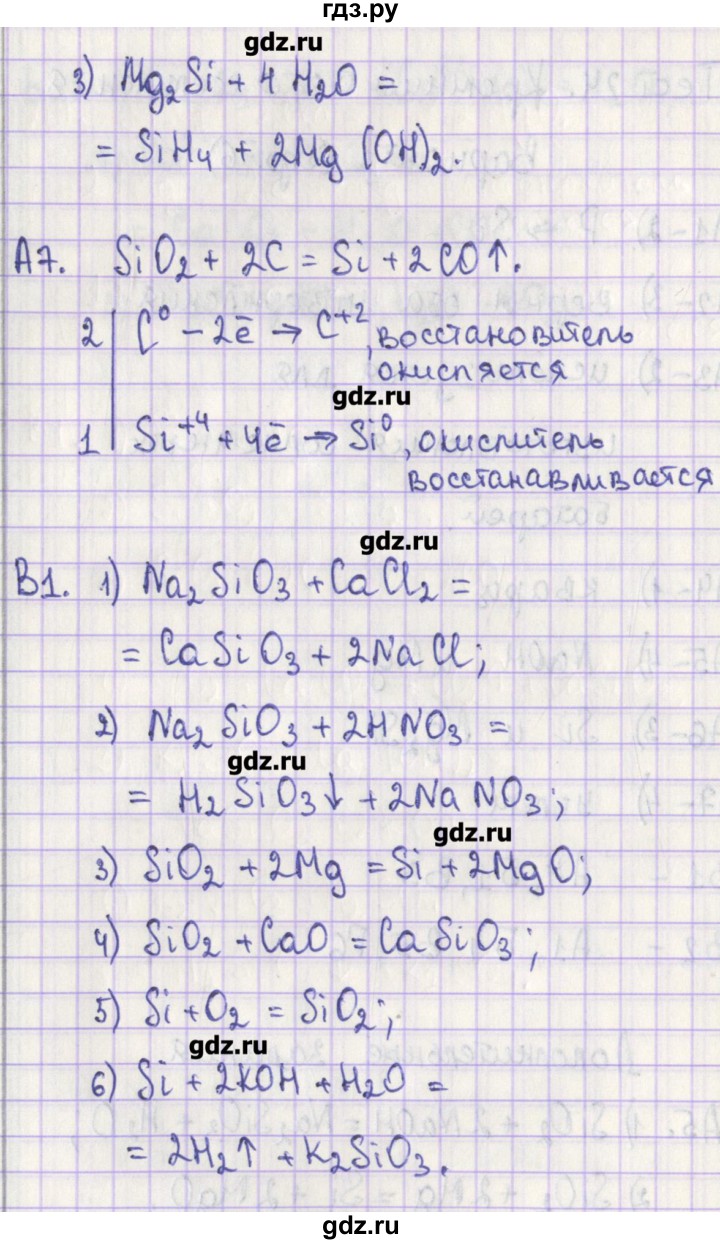 гдз.ру
gdz.ru
3) Mg₂Si + 4H₂O =
= SiH₄ + 2Mg(OH)₂.
А7. SiO₂ + 2C = Si + 2CO↑.
2 | C⁰ - 2ē → C⁺², восстановитель
окисляется
gdz.ru
1 | Si⁺⁴ + 4ē → Si⁰, окислитель
восстанавливается
gdz.ru
В1. 1) Na₂SiO₃ + CaCl₂ =
= CaSiO₃ + 2NaCl;
2) Na₂SiO₃ + 2HNO₃ =
gdz.ru
= H₂SiO₃↓ + 2NaNO₃;
gdz.ru
3) SiO₂ + 2Mg = Si + 2MgO;
4) SiO₂ + CaO = CaSiO₃;
5) Si + O₂ = SiO₂;
gdz.ru
6) Si + 2KOH + H₂O =
= 2H₂↑ + K₂SiO₃.
gdz.ru